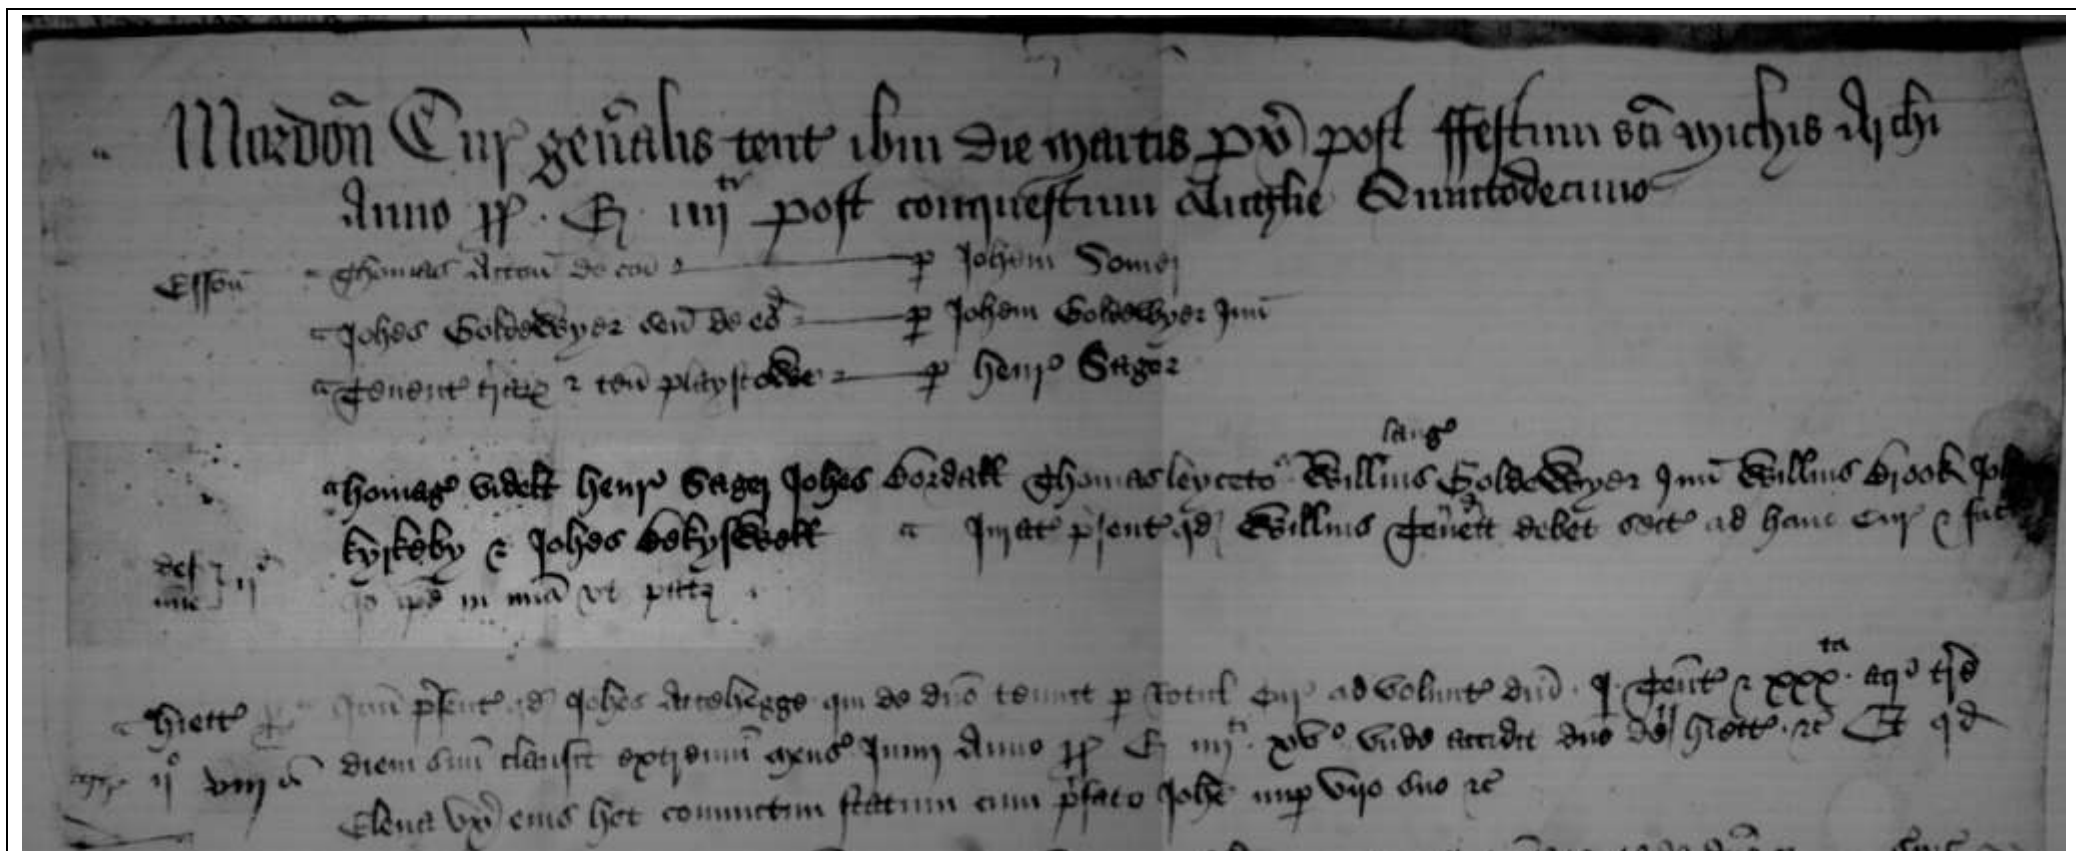 Mordoñ Cur gen̄alis tent ibm die martis px̄ post ffestum sc̄i Michis Archi
Anno rr . E . iiijti post conquestum Anglie Quintodecimo
Essoñ Thomas de coi p Johem Somer
Johes Goldewyer señ de eod p Johem Goldewyer Juñ
Tenent terr & teñ playstowe p Henr Sager
lang
homag videlt Henr Sager Johes Bordall Thomas leyceto Willms Goldewyer Juñ Willms Brook Joh
kyrkeby & Johes Bekyswell Jurat p̄sent qd Willms debet sect ad hanc Cur & fac
def ijd Io ip̄e in mīa vt patz
hiett Itm p̄sent qd Johes Attehegge qui de dño tenuit p Rotul Cur ad volunt dñi . j . Tent & xxxta acr tr̄e
ijo viij diem suũ clausit extremũ mens Junij Anno rr E iiijti xvo vnde accidit dño de hiett . &c Et qd
Elena vx̄ eius het coniunctim statum cum p̄fato Johe nup viro suo &c